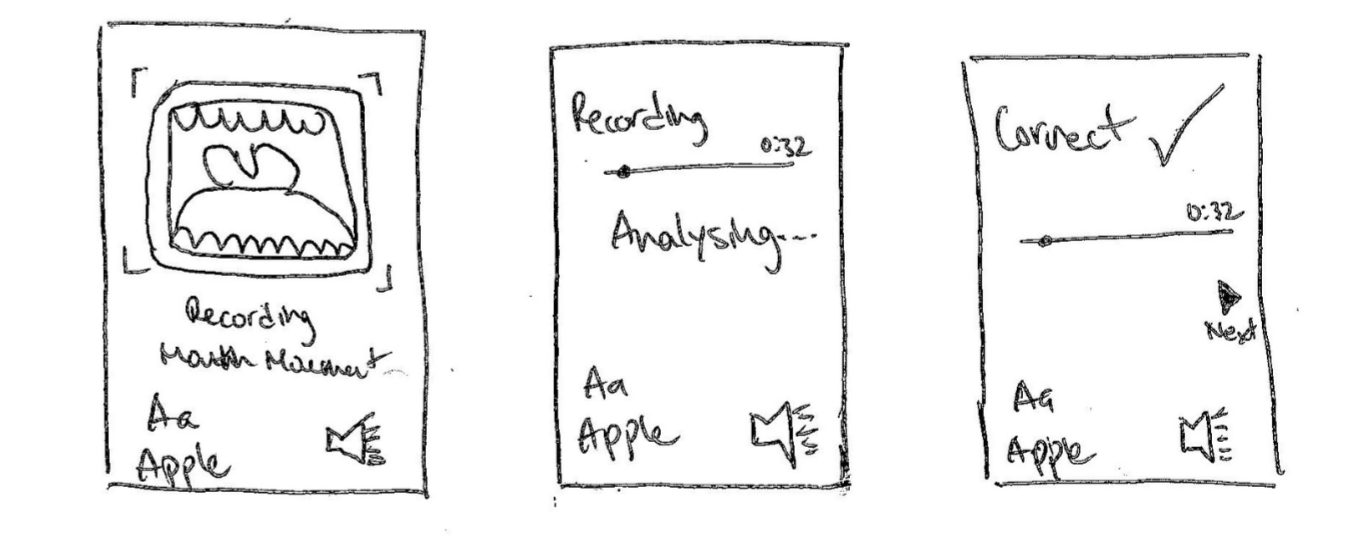 Recording
Mouth Movement
Aa
Apple
Recording
0:32
Analysing...
Aa
Apple
Correct
0:32
Next
Aa
Apple